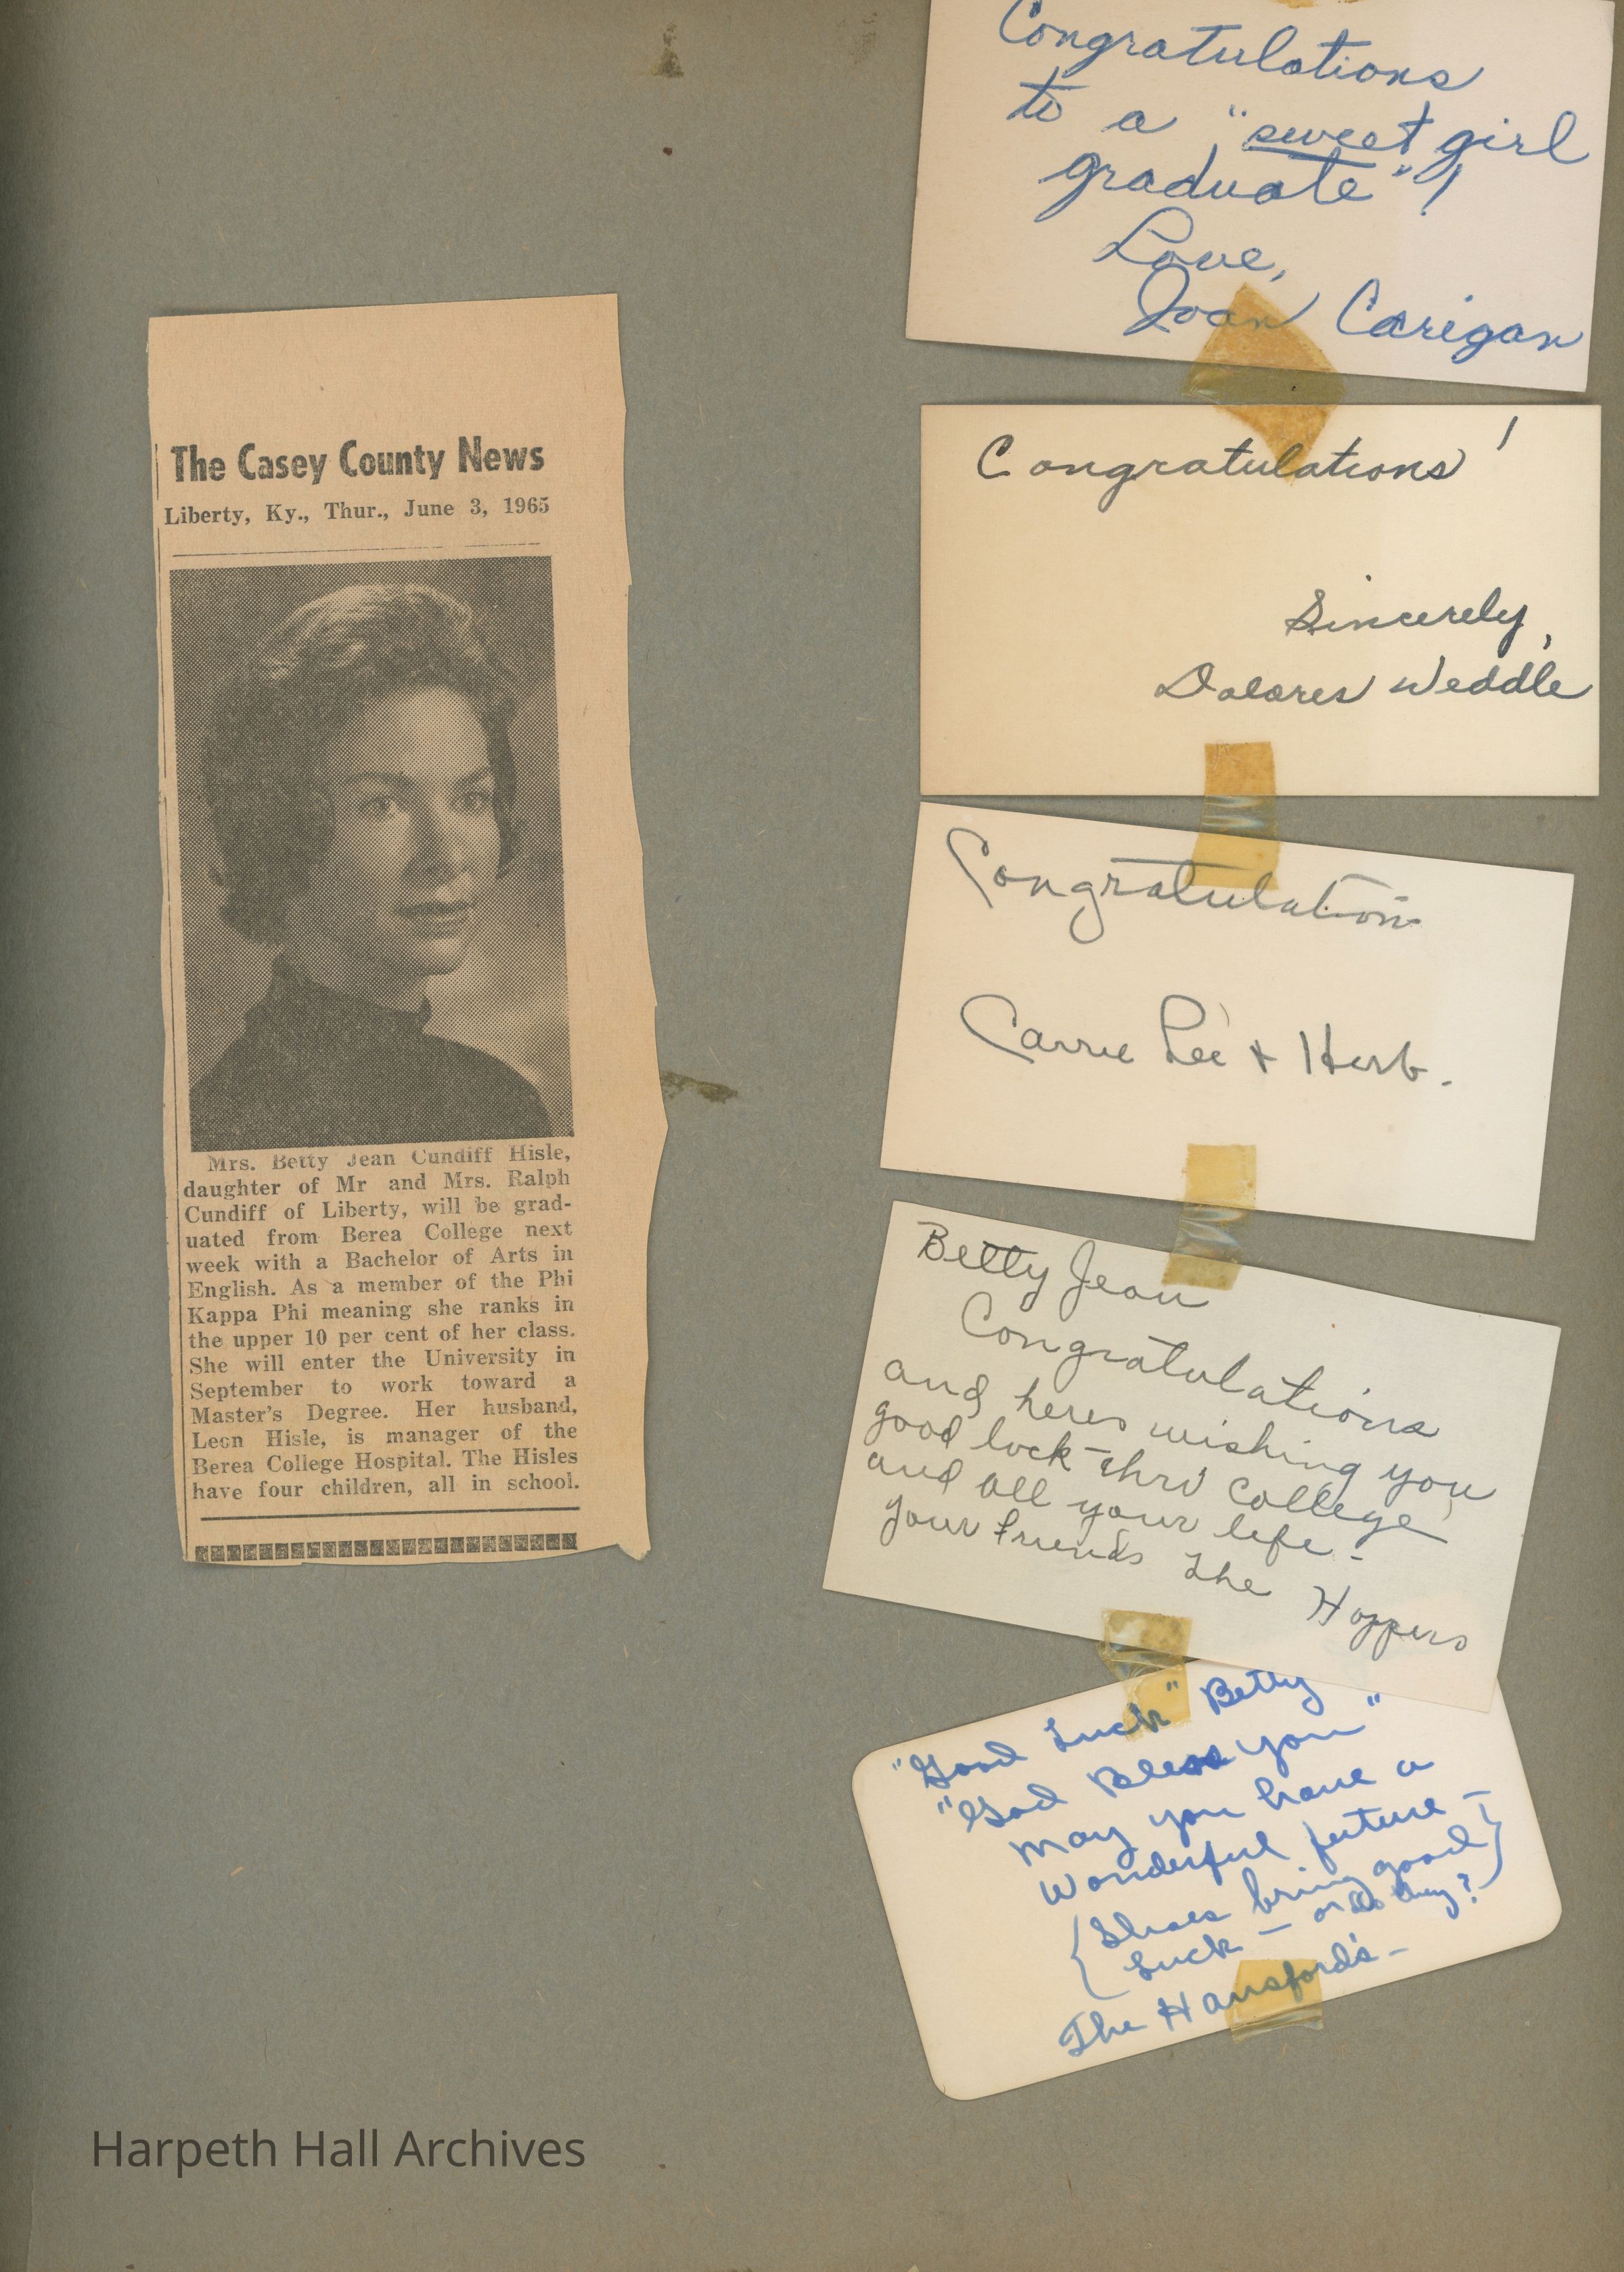 The Casey County News
Liberty, Ky., Thur., June 3, 1965
Mrs. Betty Jean Cundiff Hisle,
daughter of Mr and Mrs. Ralph
Cundiff of Liberty, will be grad-
uated from Berea College next
week with a Bachelor of Arts in
English. As a member of the Phi
Kappa Phi meaning she ranks in
the upper 10 per cent of her class.
She will enter the University in
September to work toward a
Master's Degree. Her husband,
Leon Hisle, is manager of the
Berea College Hospital. The Hisles
have four children, all in school.
Congratulations
to a "sweet girl
graduate"!
Love,
Joan Carigan
Congratulations!
Sincerely,
Dolores Weddle
Congratulations
Carrie Lee + Herb.
Betty Jean
Congratulations
and heres wishing you
good luck - thru College
and all your life -
your friends The Hoppers
"Good Luck" Betty
"God Bless you"
May you have a
Wonderful future -
{Shoes bring good}
Luck - or do they?
The Hansford's -
Harpeth Hall Archives